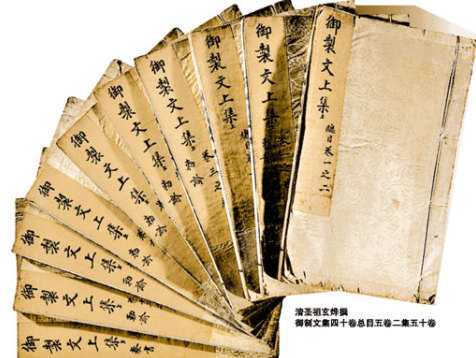 御製文上集 總目卷一之二
御製文上集
御製文上集 卷三之
御製文上集 勅諭
御製文上集 勅諭
御製文上集 勅諭
御製文上集 勅諭
御製文上集 勅諭
御製文上集 勅諭
御製文上集 奏書
清圣祖玄烨撰
御制文集四十卷总目五卷二集五十卷